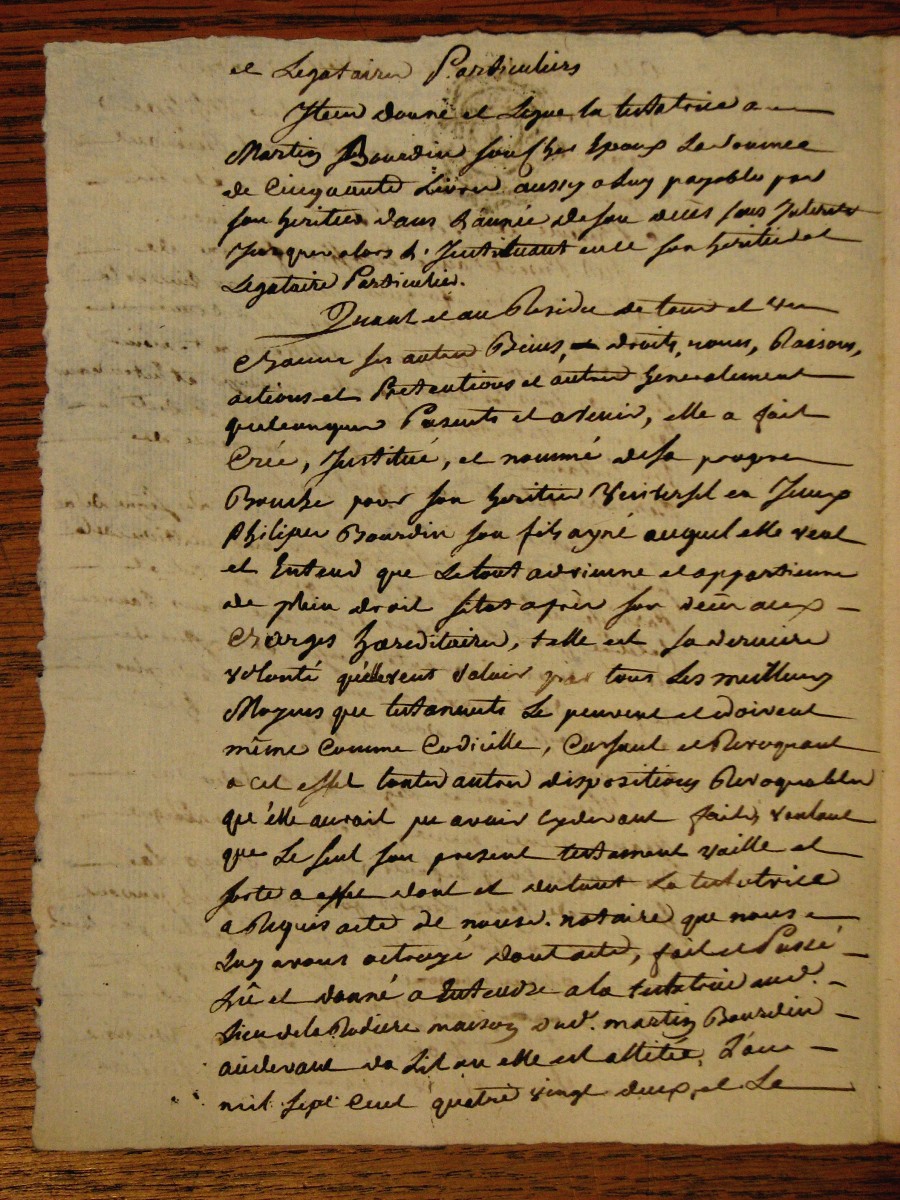 et Legataires Particuliers
Item donne et Legue la testatrice a
Martin Bourdin son cher Epoux La somme
de Cinquante Livres aussy a Luy payables par
son heritier dans L'année de son deces sans Interets
Jusques alors L'Instituant en ce son heritier et
Legataire Particulier.
Quant et au Residu de tous et un
chacuns ses autres Biens, droits, noms, Raisons,
actions et Pretentions et autres Generalement
quelconques Presents et avenir, elle a fait
Créé, Institué, et nommé de sa propre
Bouche pour son heritier Universel en Jceux
Philipes Bourdin son fils ayné auquel elle veut
et Entend que Le tout advienne et appartienne
de plein droit sitot après son deces aux
Charges hæreditaires, telle est sa derniere
volonté qu'elle veut valoir par tous Les meilleurs
Moyens que testaments Le peuvent et doivent
même Comme Codicille, Cassant et Revoquant
a cet effet toutes autres dispositions Revoquables
qu'elle aurait pu avoir Cydevant faites, voulant
que Le seul son present testament vaille et
sorte a effet dont et du tout La testatrice
a Requis acte de nousd. notaire que nous
Luy avons octroyé dont acte, fait et Passé
Lû et donné a Entendre a la testatrice aud.
Lieu de la Rodiere maison dud. martin Bourdin
au devant du Lit ou elle est allitée, L'an
mil sept Cent quatre vingt deux, et Le